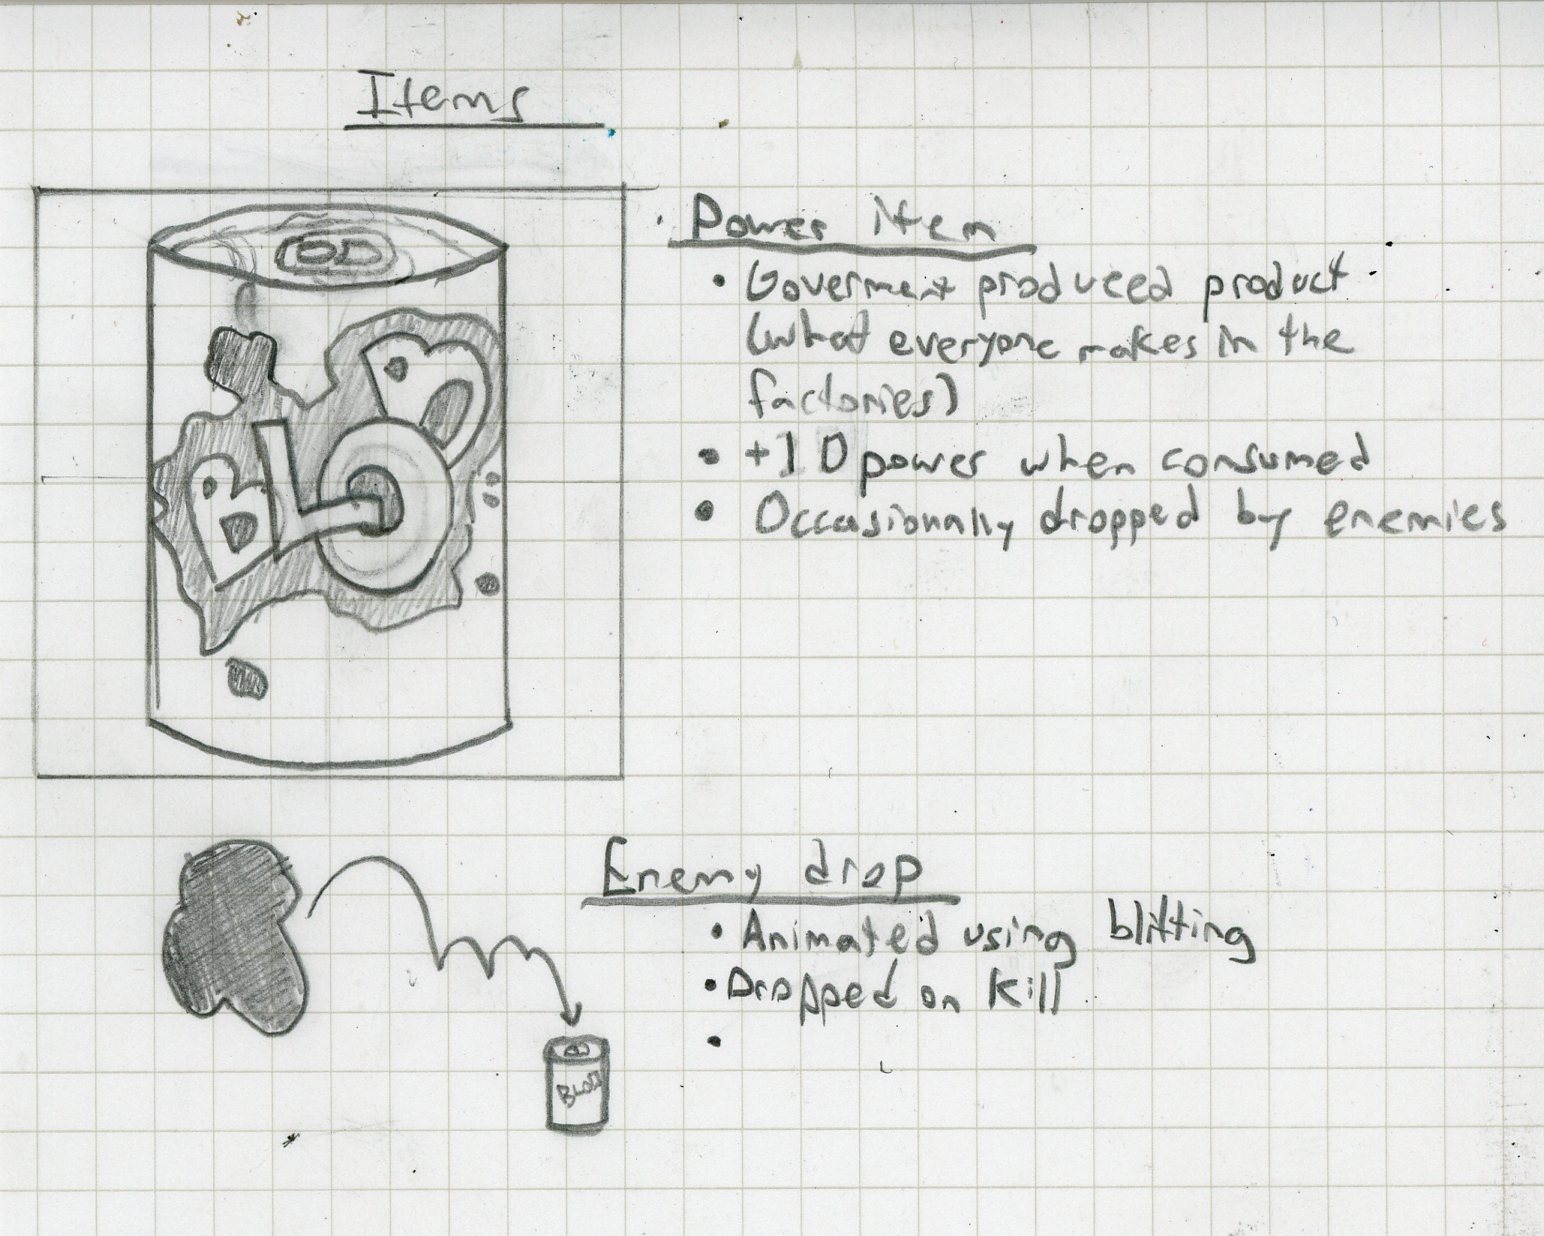 Items
Power item
• Goverment produced product
(what everyone makes in the
factories)
• +10 power when consumed
• Occasionally dropped by enemies
BLOB
Enemy drop
• Animated using blitting
• Dropped on kill
•
BLOB